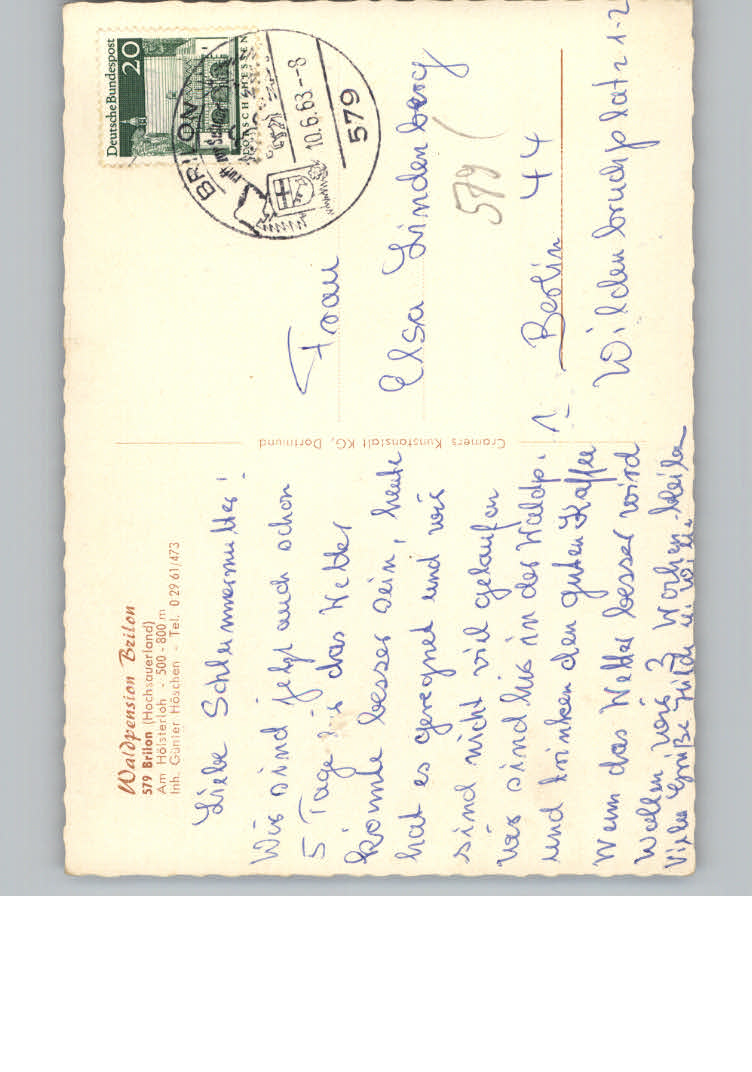 Waldpension Brilon
579 Brilon (Hochsauerland)
Am Hölsterloh - 500 - 800 m
Inh. Günter Höschen - Tel. 0 29 61/473
Liebe Schlummermutter!
Wir sind jetzt auch schon
5 Tage hir das Wetter
könnte besser sein, heute
hat es geregnet und wir
sind nicht viel gelaufen
Wir sind hir in der Waldp.
und trinken den guten Kaffee
Wenn das Wetter besser wird
Wollen wir 3 Wochen bleiben
Viele Grüße
Cramers Kunstanstalt KG, Dortmund
Deutsche Bundespost
20
BRILON
10.6.63--8
579
Frau
Elsa Lindenberg
579
1 Berlin 44
Wildenbruchplatz 1-2